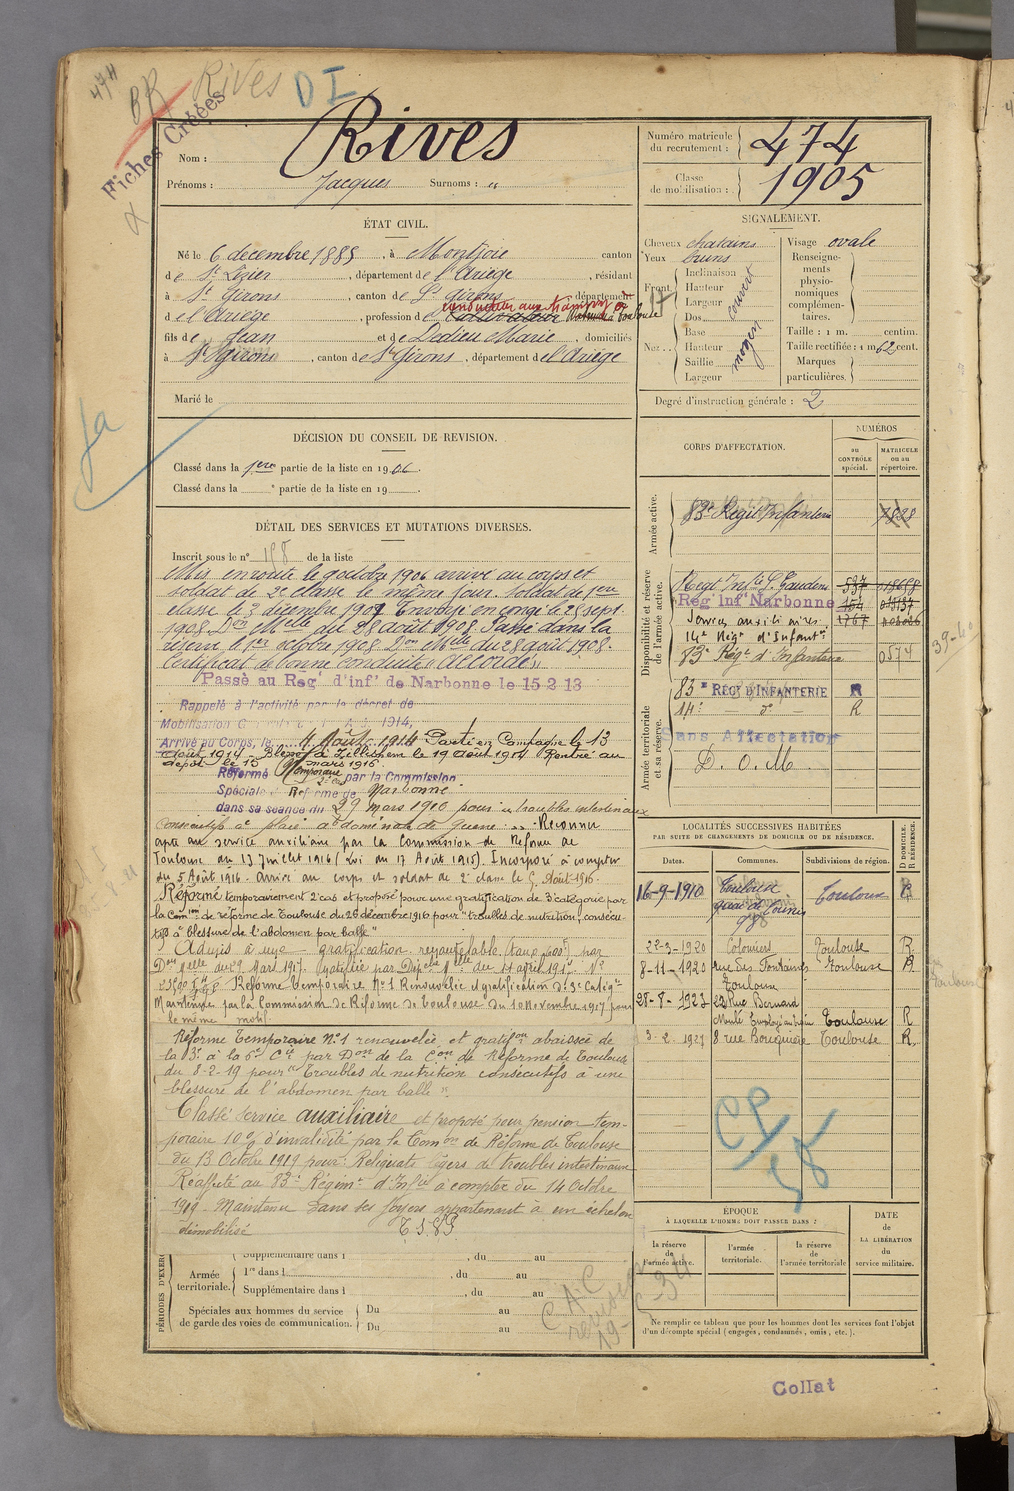 474
BR Rives DI
Fiches Créées
Nom : Rives
Prénoms : Jacques Surnoms : "
Numéro matricule du recrutement : 474
Classe de mobilisation : 1905
ÉTAT CIVIL.
Né le 6 décembre 1885, à Montjoie canton
de St Lizier, département de l'Ariège, résidant
à St Girons, canton de St Girons, département
de l'Ariège, profession de cultivateur
conducteur aux tramways de Toulouse
fils de Jean et de Dedieu Marie, domiciliés
à St Girons, canton de St Girons, département de l'Ariège
Marié le
SIGNALEMENT.
Cheveux chatains
Yeux bruns
Front Inclinaison
Hauteur
Largeur
couvert
Nez Dos
Base
Hauteur
Saillie
Largeur
moyen
Visage ovale
Renseignements physionomiques complémentaires.
Taille : 1 m. centim.
Taille rectifiée : 1 m 62 cent.
Marques particulières.
Degré d'instruction générale : 2
DÉCISION DU CONSEIL DE REVISION.
Classé dans la 1ere partie de la liste en 1906.
Classé dans la e partie de la liste en 19
Ja
DÉTAIL DES SERVICES ET MUTATIONS DIVERSES.
Inscrit sous le n° 158 de la liste
Mis en route le 9 octobre 1906 arrivé au corps et
soldat de 2e classe le même jour. Soldat de 1ere
classe le 3 décembre 1907 Envoyé en congé le 28 sept.
1908. Don Melle du 28 août 1908. Passé dans la
réserve le 1er octobre 1908 Don Melle du 28 août 1908.
Certificat de bonne conduite "Accordé"
Passé au Reg' d'inf' de Narbonne le 15 2 13
Rappelé à l'activité par le décret de
Mobilisation G 1914,
Arrivé au Corps, le 4 Août 1914 Parti en Campagne le 13
Août 1914. Blessé à Zillisheim le 19 août 1914 Rentré au
dépôt le 15 mars 1916.
Réformé temporaire 2e cas par la Commission
Spéciale Réforme de Narbonne
dans sa séance du 29 mars 1916 pour "troubles intestinaux
Consécutifs à plaie abdominale de guerre". Reconnu
apte au service auxiliaire par la Commission de Réforme de
Toulouse du 13 Juillet 1916 (Loi du 17 Août 1915). Incorporé à compter
du 5 Août 1916. Arrivé au corps et soldat de 2e classe le 5 Août 1916.
Réformé temporairement 2e cas et proposé pour une gratification de 3e catégorie par
la Comon de réforme de Toulouse du 26 décembre 1916 pour "troubles de nutrition, consécu-
tifs à blessure de l'abdomen par balle"
Admis à une gratification renouvelable (taux 600f) par
Don Melle du 9 Mars 1917. Notifiée par Dépche Melle du 11 avril 1917 N°
Réforme temporaire N°1 Renouvelée et gratification de 3e Catégie
Maintenue par la Commission de Réforme de Toulouse du 10 Novembre 1917 pour
le même motif
Réforme Temporaire N°1 renouvelée et gratifon abaissée de
la 3e à la 6e Cie par Don de la Con de Réforme de Toulouse
du 8-2-19 pour "Troubles de nutrition consécutifs à une
blessure de l'abdomen par balle".
Classé service auxiliaire et proposé pour pension tem-
poraire 10% d'invalidité par la Comon de Réforme de Toulouse
du 13 Octobre 1919 pour : Reliquats légers de troubles intestinaux
Réaffecté au 83e Régimt d'Infie à compter du 14 Octobre
1919. Maintenu dans ses foyers appartenant à un échelon
démobilisé
CORPS D'AFFECTATION.
NUMÉROS
au CONTRÔLE spécial.
MATRICULE ou au répertoire.
Armée active.
83e Régit Infanterie 7828
Disponibilité et réserve de l'armée active.
Régt Infie St Gaudens 537
Reg' inf' Narbonne 154
Services auxiliaires 1767
14e Régt d'Infantie
83e Régt d'Infanterie 0574
Armée territoriale et sa réserve.
83e REGt D'INFANTERIE R
14e do R
Sans Affectation
D. O. M.
39-40
LOCALITÉS SUCCESSIVES HABITÉES
PAR SUITE DE CHANGEMENTS DE DOMICILE OU DE RÉSIDENCE.
Dates. Communes. Subdivisions de région. D DOMICILE. R RÉSIDENCE.
16-9-1910 Toulouse Toulouse R
22-3-1920 Colomiers Toulouse R.
8-11-1920 rue des Fontaines Toulouse R
Toulouse
28-8-1923 22 Rue Bernard
Toulouse R
3-2-1927 8 rue Bouquière Toulouse R.
CP 58
ÉPOQUE
À LAQUELLE L'HOMME DOIT PASSER DANS :
la réserve de l'armée active.
l'armée territoriale.
la réserve de l'armée territoriale
DATE DE LA LIBÉRATION du service militaire.
PÉRIODES D'EXER
Supplémentaire dans l , du au
Armée territoriale.
1re dans l , du au
Supplémentaire dans l , du au
Spéciales aux hommes du service de garde des voies de communication.
Du au
Du au
CAC
Ne remplir ce tableau que pour les hommes dont les services font l'objet
d'un décompte spécial (engagés, condamnés, omis, etc.).
Collat